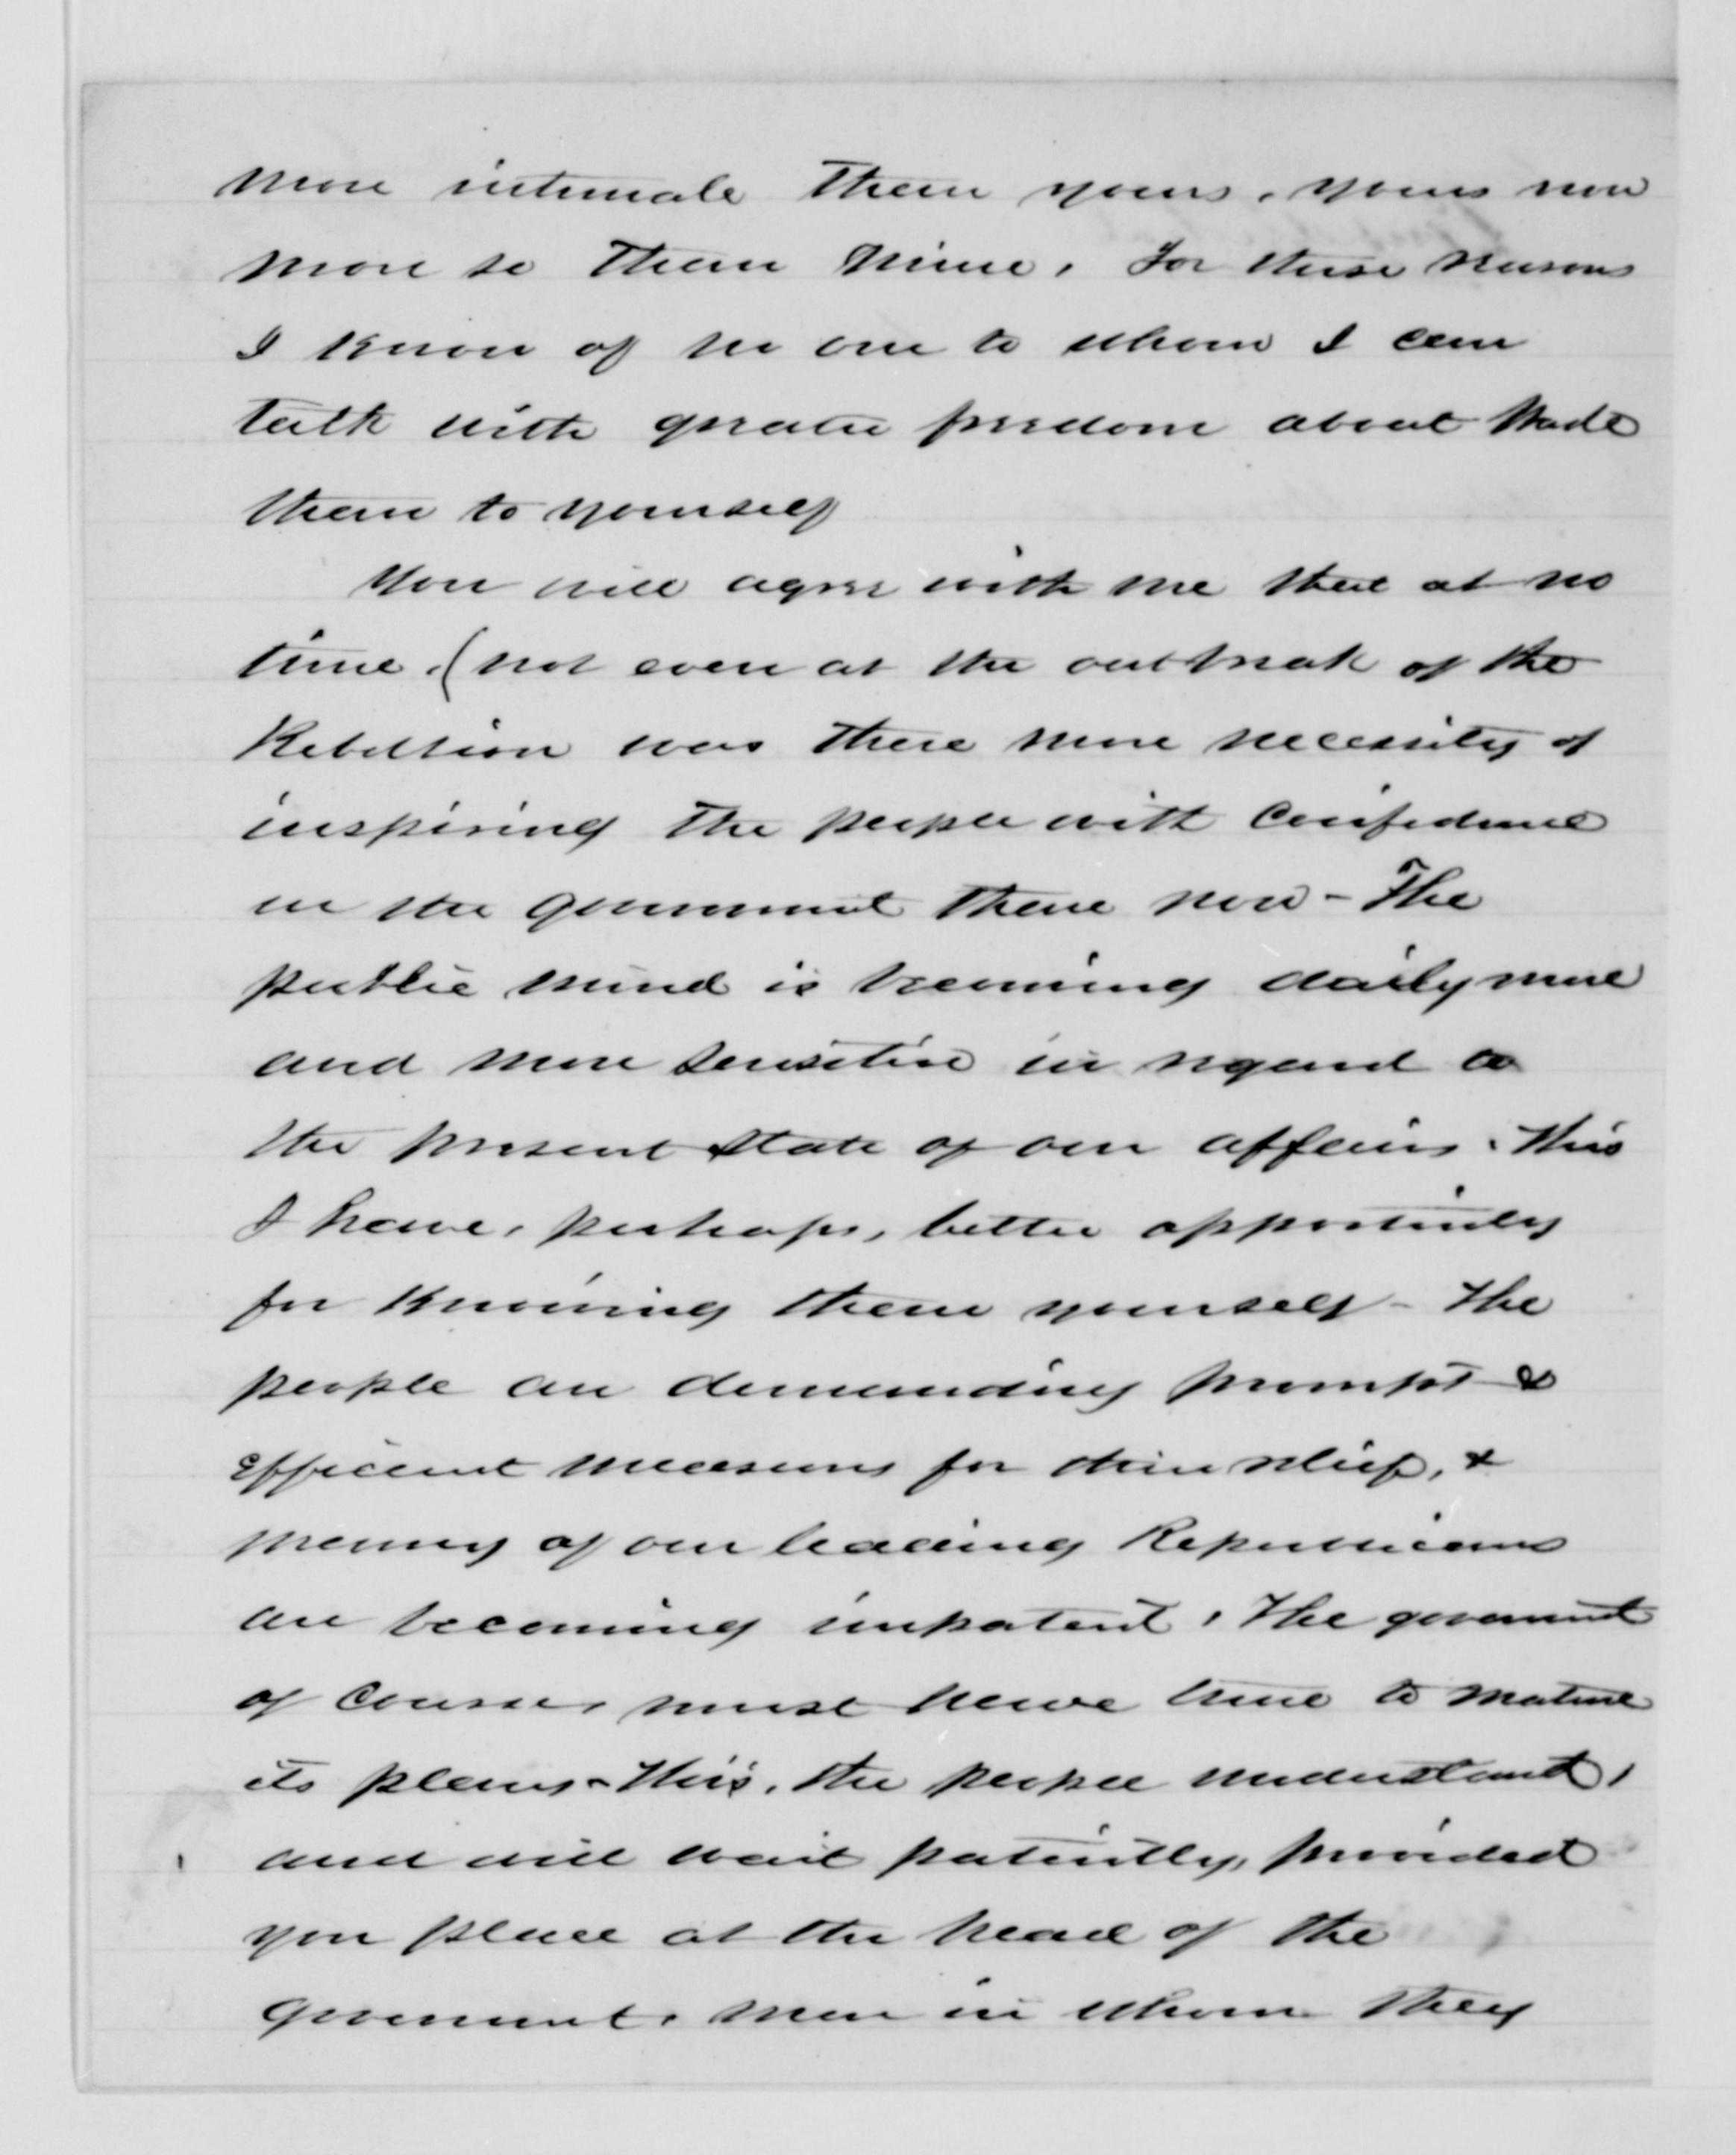 more intimate than yours, yours now
more so than mine. For these reasons
I know of no one to whom I can
talk with greater freedom about Wade
than to yourself
You will agree with me that at no
time, (not even at the outbreak of the
Rebellion was there more necessity of
inspiring the people with confidence
in the government than now - The
public mind is becoming daily more
and more sensitive in regard to
the present state of our affairs. This
I have, perhaps, better opportunity
for knowing than yourself - The
people are demanding prompt &
efficient measures for their relief, &
many of our leading Republicans
are becoming impatent, The goverment
of course, must have time to mature
its plans - This, the people understand,
and will wait patiently, provided
you place at the head of the
Goverment, men in whom they